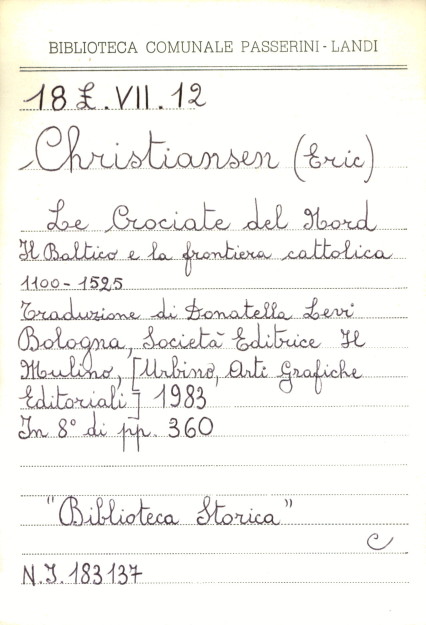 BIBLIOTECA COMUNALE PASSERINI-LANDI
18 Ł.VII.12
Christiansen (Eric)
Le Crociate del Nord
Il Baltico e la frontiera cattolica
1100-1525
Traduzione di Donatella Levi
Bologna, Società Editrice Il
Mulino, [Urbino, Arti Grafiche
Editoriali] 1983
In 8° di pp. 360
"Biblioteca Storica"
C
N.I. 183137